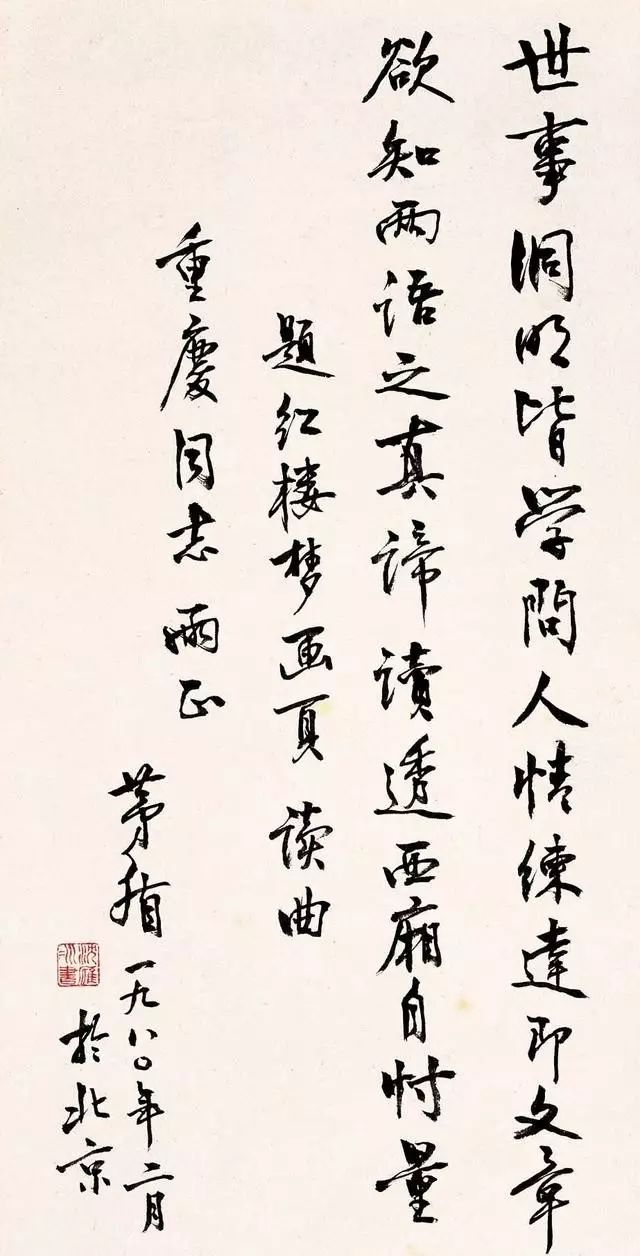 世事洞明皆学問人情練達即文章
欲知兩语之真谛讀透西廂自忖量
题红楼梦画頁 读曲
重慶同志 正
茅盾 一九八〇年二月
於北京
沈雁冰書